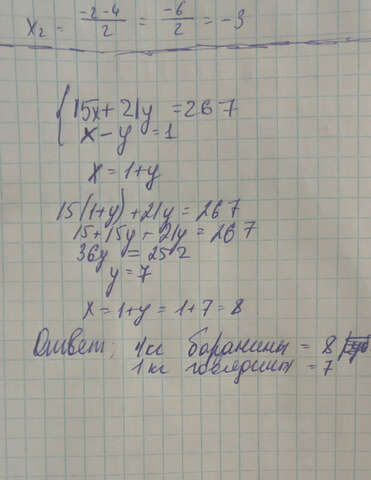 x₂ = (-2-4)/2 = -6/2 = -3
{ 15x + 21y = 267
x - y = 1
x = 1+y
15(1+y) + 21y = 267
15 + 15y + 21y = 267
36y = 252
y = 7
x = 1+y = 1+7 = 8
Ответ: 1кг баранины = 8
1 кг говядины = 7